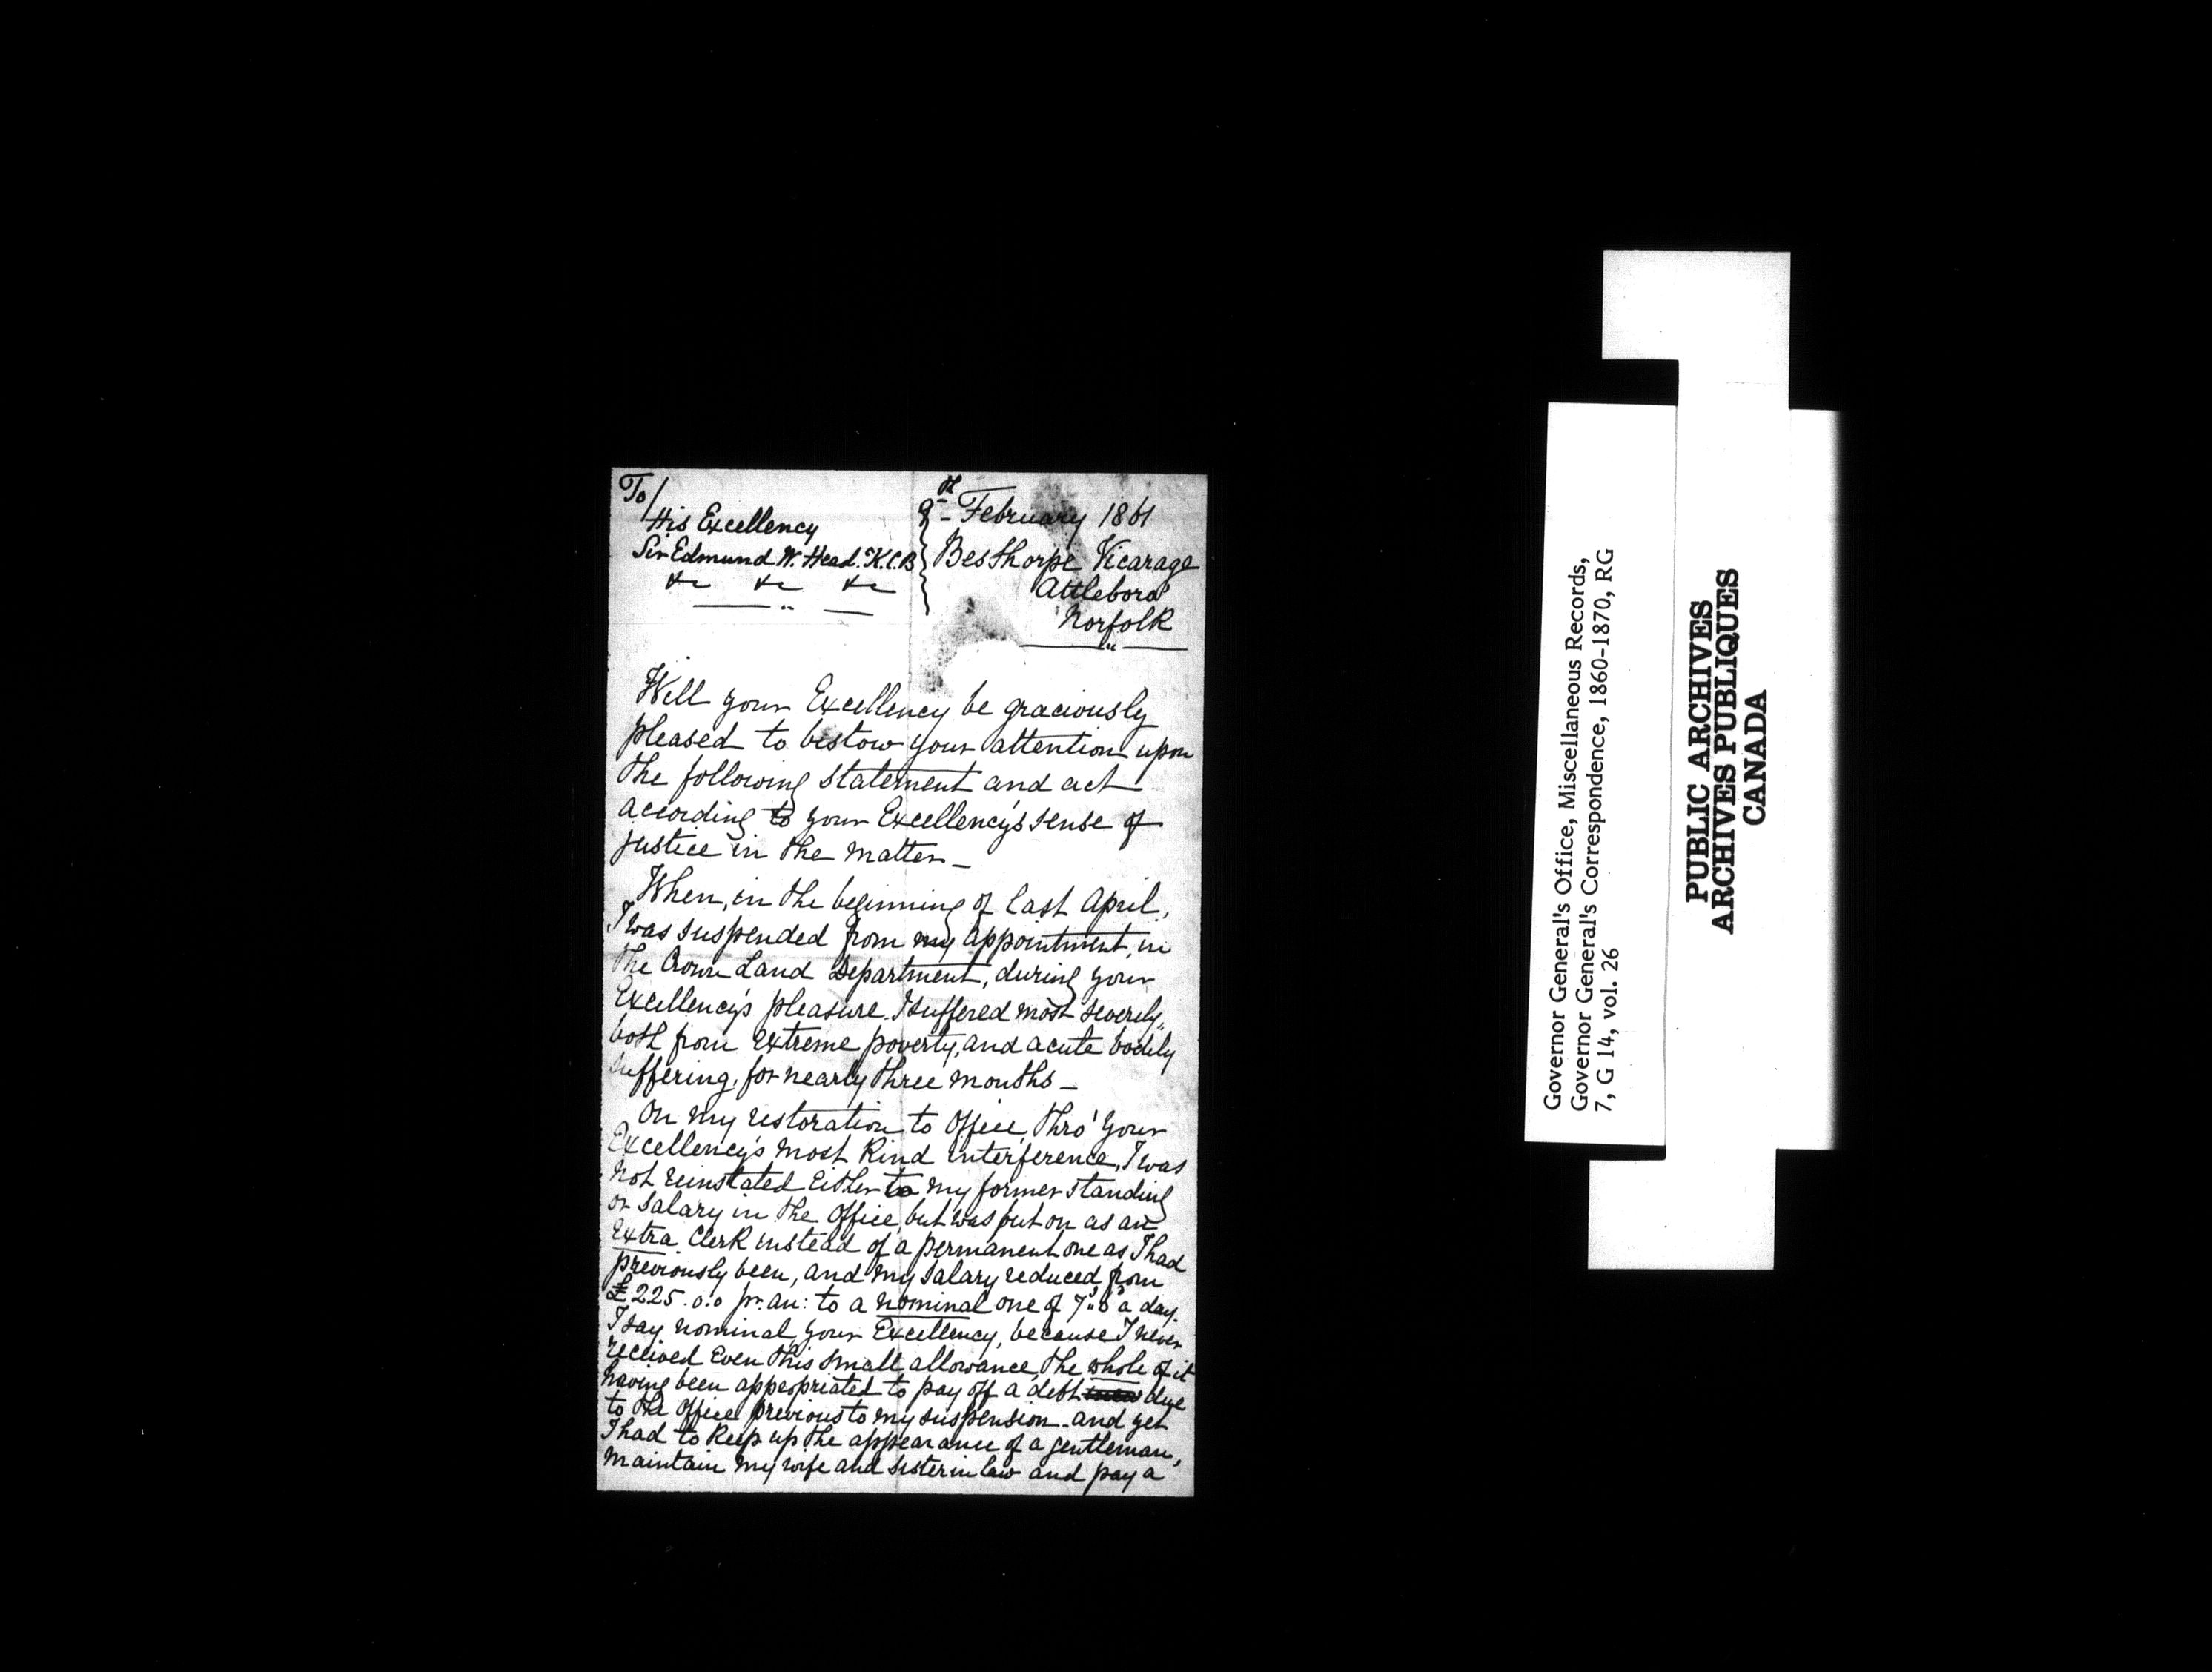 To/
His Excellency
Sir Edmund W. Head. K.C.B
&c &c &c
9th - February 1861
Besthorpe Vicarage
Attleboro'
Norfolk
Will your Excellency be graciously
pleased to bestow your attention upon
the following statement and act
according to your Excellency's sense of
justice in the matter -
When, in the beginning of last April,
I was suspended from my appointment, in
the Crown Land Department, during your
Excellency's pleasure. I suffered most severely,
both from extreme poverty, and acute bodily
suffering, for nearly three months -
On my restoration to Office, thro' Your
Excellency's most Kind interference, I was
not reinstated Either to my former standing
or salary in the Office, but was put on as an
Extra Clerk instead of a permanent one as I had
previously been, and my salary reduced from
£225.0.0 pr. an: to a nominal one of 7"6 a day.
I say nominal, your Excellency, because I never
received Even this small allowance, the whole of it
having been appropriated to pay off a debt due
to the Office previous to my suspension - and yet
I had to Keep up the appearance of a gentleman,
maintain my wife and sister in law and pay a
Governor General's Office, Miscellaneous Records,
Governor General's Correspondence, 1860-1870, RG
7, G 14, vol. 26
PUBLIC ARCHIVES
ARCHIVES PUBLIQUES
CANADA